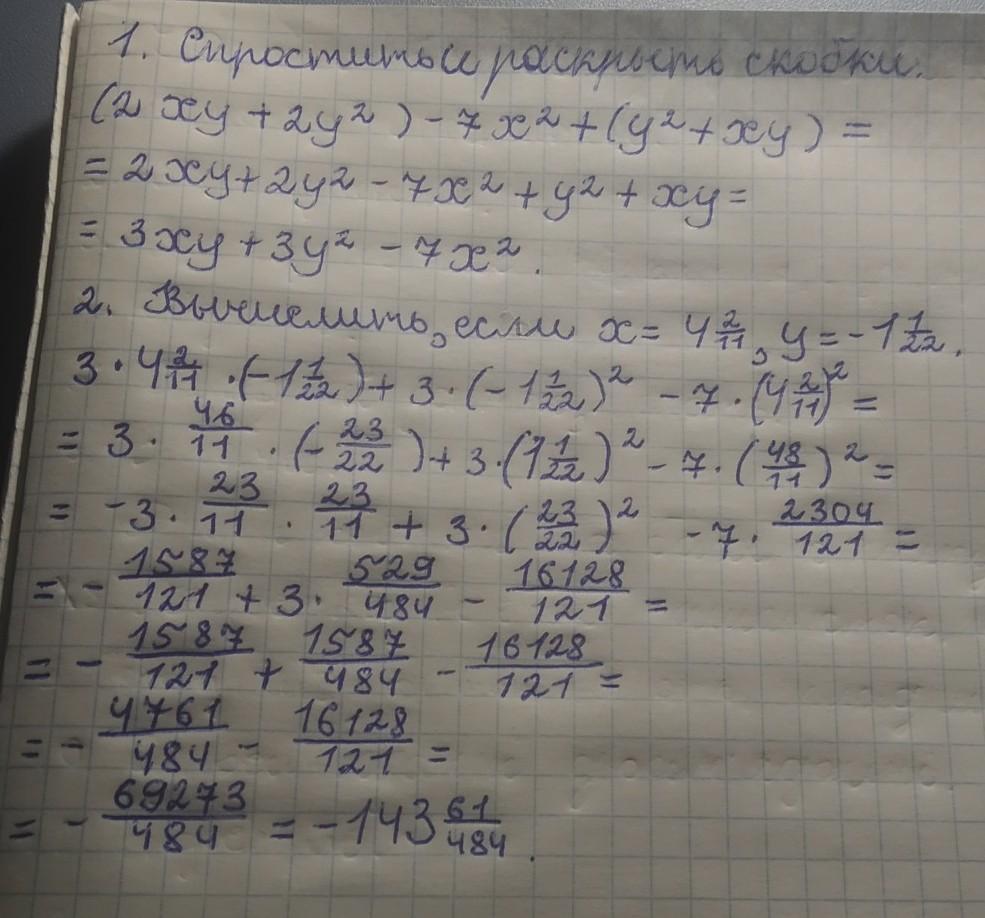 1. Спростить и раскрыть скобки.
(2xy + 2y²) - 7x² + (y² + xy) =
= 2xy + 2y² - 7x² + y² + xy =
= 3xy + 3y² - 7x².
2. Вычислить, если x = 4 2/11, y = -1 1/22.
3 · 4 2/11 · (-1 1/22) + 3 · (-1 1/22)² - 7 · (4 2/11)² =
= 3 · 46/11 · (-23/22) + 3 · (1 1/22)² - 7 · (48/11)² =
= -3 · 23/11 · 23/11 + 3 · (23/22)² - 7 · 2304/121 =
= - 1587/121 + 3 · 529/484 - 16128/121 =
= - 1587/121 + 1587/484 - 16128/121 =
= - 4761/484 - 16128/121 =
= - 69273/484 = -143 61/484.